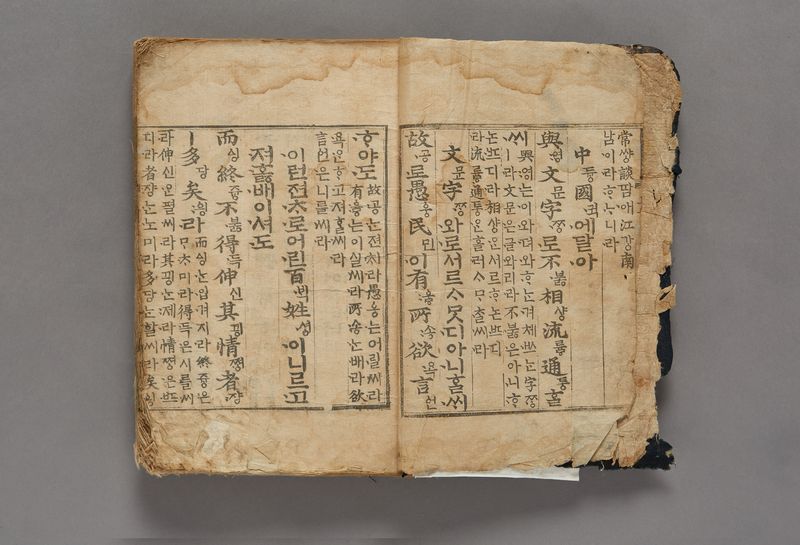 常쌍談땀애江강南
남이라ᄒᆞᄂᆞ니라
中듕國귁에달아
與영文문字ᄍᆞᆼ로不붏相샹流륳通통ᄒᆞᆯ
씨與영는이와뎌와ᄒᆞᄂᆞᆫ겨체쓰는字ᄍᆞᆼ
ㅣ라文문은글와리라不붏은아니ᄒᆞ
논ᄠᅳ디라相샹ᄋᆞᆫ서르ᄒᆞ논ᄠᅳ디
라流륳通통ᄋᆞᆫ흘러ᄉᆞᄆᆞᄎᆞᆯ씨라
文문字ᄍᆞᆼ와로서르ᄉᆞᄆᆞᆺ디아니ᄒᆞᆯᄊᆡ
故공로愚웅民민이有ᅌᅮᇢ所송欲욕言언
ᄒᆞ야도
故공ᄂᆞᆫ젼ᄎᆡ라愚웅는어릴씨라
有ᅌᅮᇢ는이실씨라所송ᄂᆞᆫ배라欲
욕ᄋᆞᆫᄒᆞ고져ᄒᆞᆯ씨라
言언은니를씨라
이런젼ᄎᆞ로어린百ᄇᆡᆨ姓셩이니르고
져홇배이셔도
而ᅀᅵᆼ終즁不붏得득伸신其끵情쪙者쟝
ㅣ多당矣ᅌᅴᆼ라
而ᅀᅵᆼᄂᆞᆫ입겨지라終즁은
ᄆᆞᄎᆞ미라得득은시를씨
라伸신은펼씨라其끵는제라情쪙은ᄠᅳ
디라者쟝ᄂᆞᆫ노미라多당ᄂᆞᆫ할씨라矣ᅌᅴᆼ